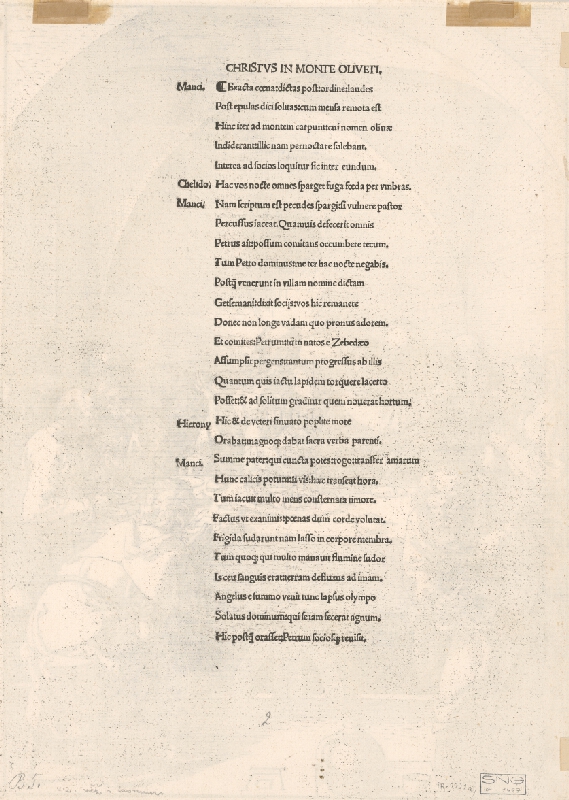 CHRISTVS IN MONTE OLIVETI.
Manci. ¶ Exacta cœna: dictas post ordine laudes
Post epulas dici solitas: cum mensa remota est
Hinc iter ad montem carpunt: cui nomen oliuæ
Indiderant: illic nam pernoctare solebant.
Interea ad socios loquitur sic inter eundum.
Chelido. Hac vos nocte omnes sparget fuga fœda per vmbras.
Manci. Nam scriptum est pecudes spargi: si vulnere pastor
Percussus iaceat. Quamuis defecerit omnis
Petrus ait: possum comitans occumbere tecum.
Tum Petro dominus: me ter hac nocte negabis.
Postq̃ venerunt in villam nomine dictam
Getsemani: dixit socijs: vos hic remanete
Donec non longe vadam quo pronus adorem.
Et comites: Petrum: natos e Zebedæo
Assumpsit pergens: tantum progressus ab illis
Quantum quis iactu lapidem torquere lacerto
Posset: & ad solitum graditur quem nouerat hortum.
Hierony. Hic & de veteri sinuato poplite more
Orabat: magnoq; dabat sacra verba parenti.
Manci. Summe pater: qui cuncta potes: rogo: transfer amarum
Hunc calicis potum: si vis: hæc transeat hora.
Tum iacuit multo mens consternata timore.
Factus vt exanimis: pœnas dum corde volutat.
Frigida sudarunt nam lasso in corpore membra.
Tum quoq; qui multo manauit flumine sudor
Is ceu sanguis erat: terram defluxus ad imam.
Angelus e summo venit tunc lapsus olympo
Solatus dominum: qui seram fecerat agnum.
Hic postq̃ orasset: Petrum sociosq; reuisit.
2
B. 5.